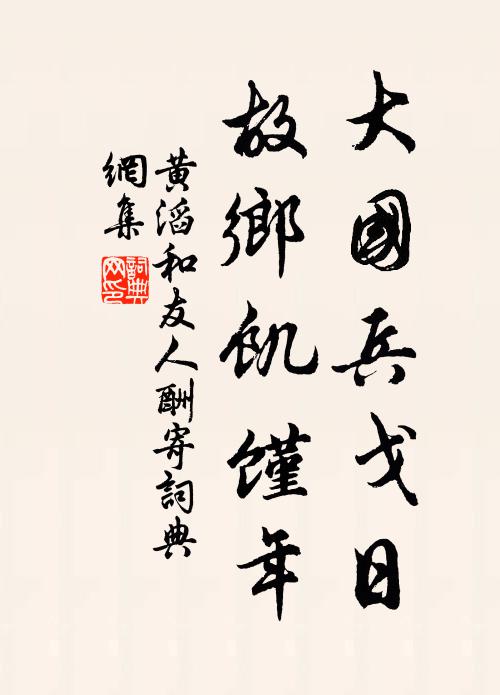 大國兵戈日
故鄉飢饉年
黃滔和友人酬寄詞典
網集
詞典網印